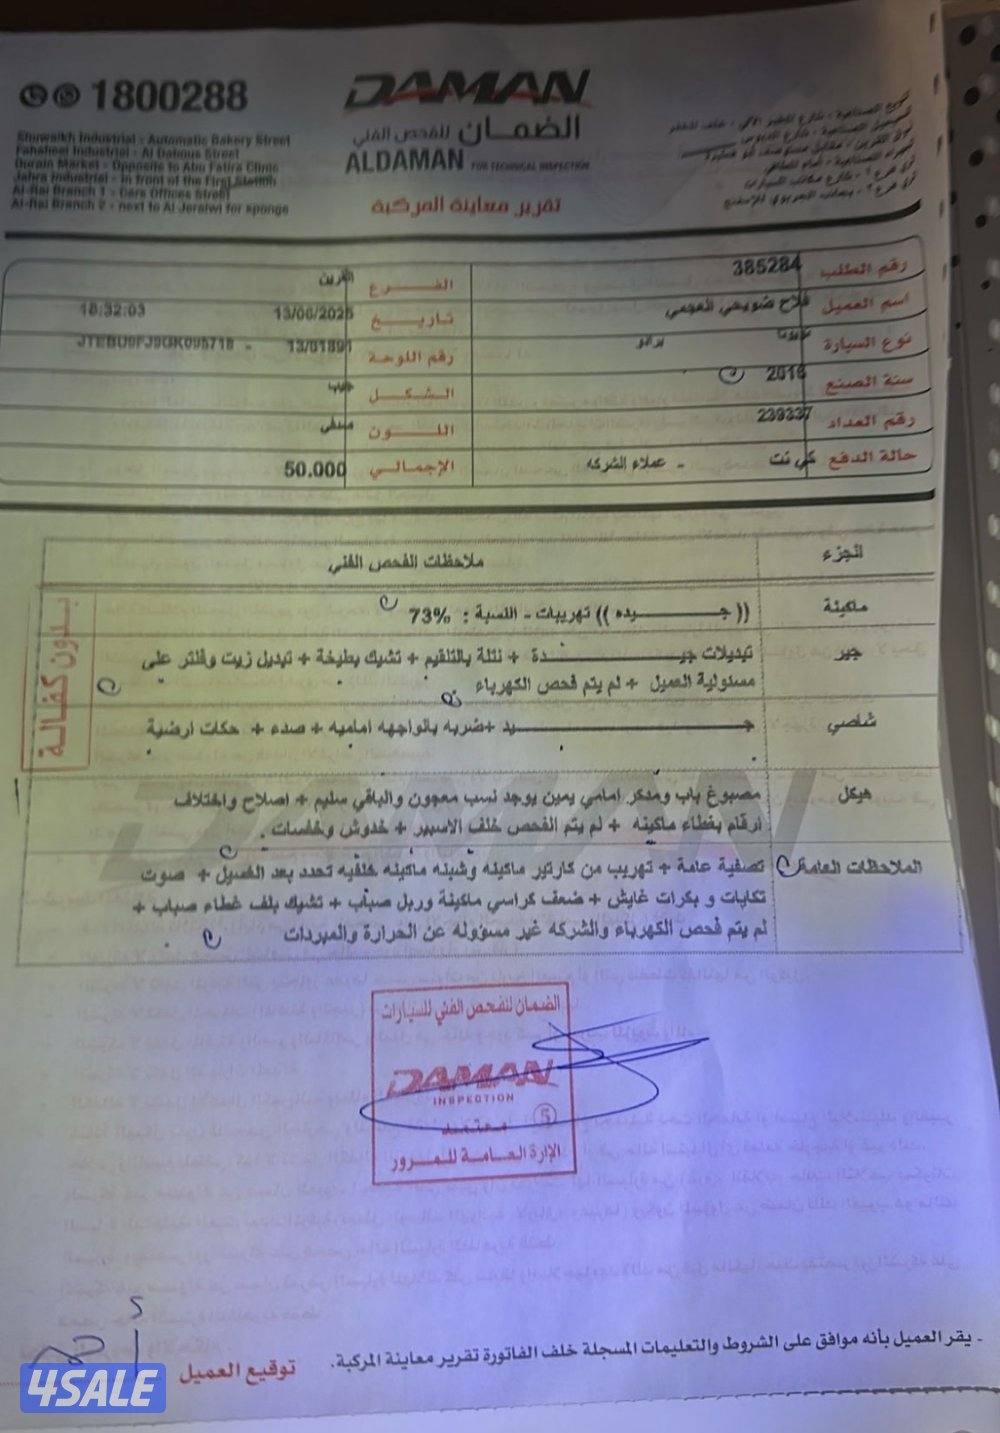 1800288
Shuwaikh Industrial - Automatic Bakery Street
Fahaheel Industrial - Al Dabous Street
Qurain Market - Opposite to Abu Fatira Clinic
Jahra Industrial - in front of the First Station
Al-Rai Branch 1 - Cars Offices Street
Al-Rai Branch 2 - next to Al Jeraiwi for sponge
DAMAN
الضمان للفحص الفني
ALDAMAN FOR TECHNICAL INSPECTION
تقرير معاينة المركبة
رقم الطلب 385284 الفرع القرين
اسم العميل فلاح ضويحي العجمي تاريخ 13/06/2025 18:32:03
نوع السيارة تويوتا برادو رقم اللوحة 13/81891 - JTEBU9FJ9GK095718
سنة الصنع 2016 الشكل جيب
رقم العداد 239337 اللون صدفي
حالة الدفع كي نت - عملاء الشركه الإجمالي 50.000
الجزء ملاحظات الفحص الفني
ماكينة (( جـــــيده )) تهريبات - النسبة : 73%
جير تبديلات جيـــــدة + نتلة بالتلقيم + تشيك بطيخة + تبديل زيت وفلتر على
مسئولية العميل + لم يتم فحص الكهرباء
شاصي جـــــيد +ضربه بالواجهه اماميه + صدء + حكات ارضية
هيكل مصبوغ باب ومدكر امامي يمين يوجد نسب معجون والباقي سليم + اصلاح واختلاف
ارقام بغطاء ماكينه + لم يتم الفحص خلف الاسبير + خدوش وخاسات .
الملاحظات العامة تصفية عامة + تهريب من كارتير ماكينه وشبنه ماكينه خلفيه تحدد بعد الغسيل + صوت
تكايات و بكرات غايش + ضعف كراسي ماكينة وربل صباب + تشيك بلف غطاء صباب +
لم يتم فحص الكهرباء والشركه غير مسؤوله عن الحرارة والمبردات
بدون كفالة
الضمان للفحص الفني للسيارات
DAMAN
INSPECTION
معتمد 5
الإرة العامة للمرور
- يقر العميل بأنه موافق على الشروط والتعليمات المسجلة خلف الفاتورة تقرير معاينة المركبة.
توقيع العميل
4SALE